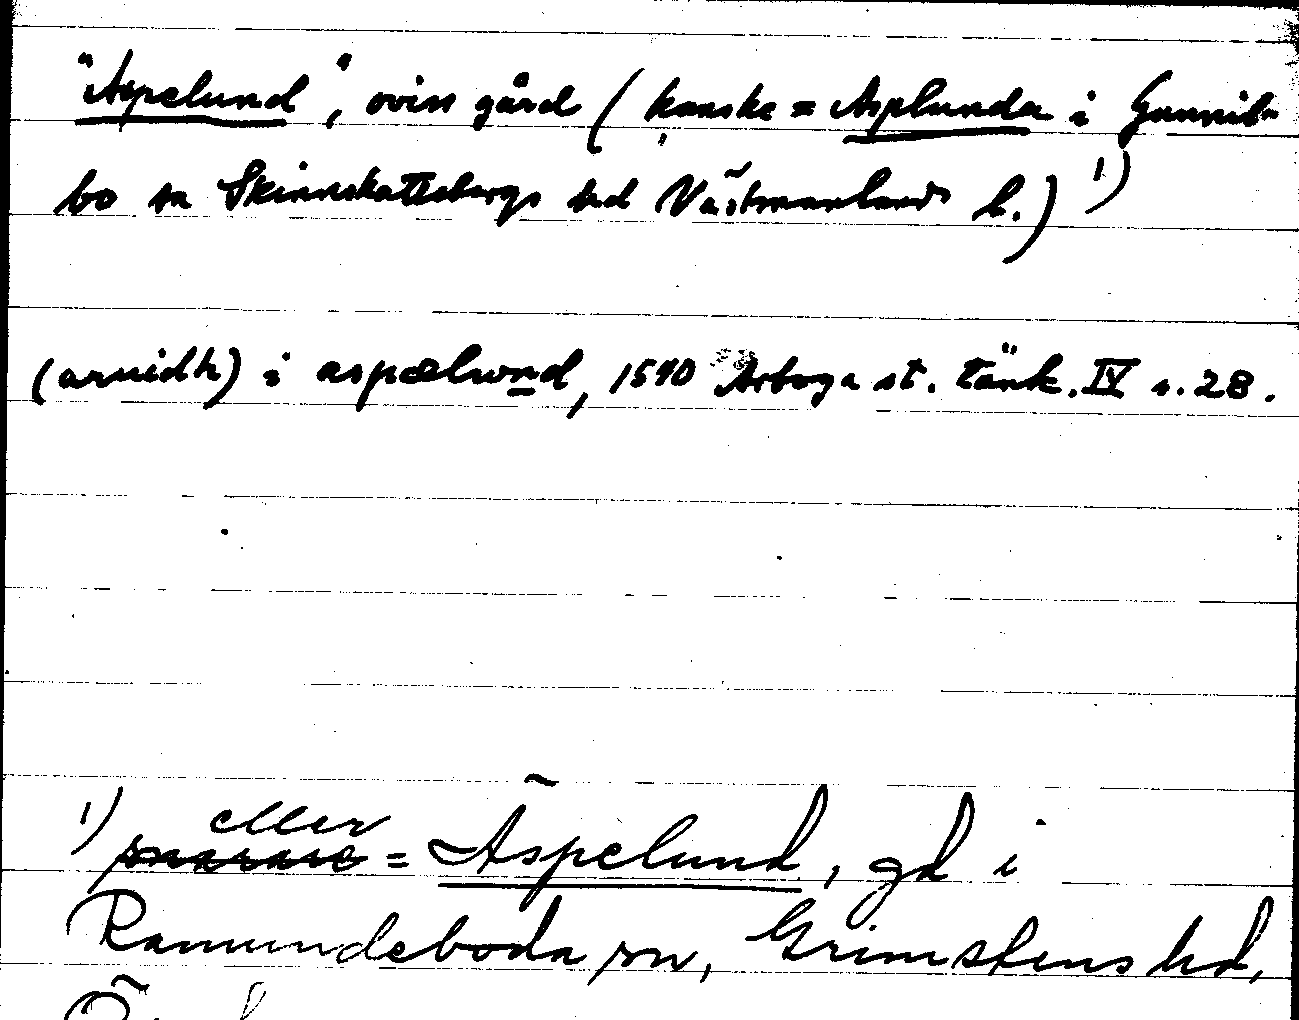 "Aspelund", oviss gård (kanske = Asplunda i Gunnil-
bo sn Skinnskattebergs hd Västmanlands l.) 1)
(arnidh) i aspælwnd, 1510 Arboga st. tänk. IV s. 28.
1) eller = Äspelund, gd i
Ramundeboda sn, Grimstens hd,